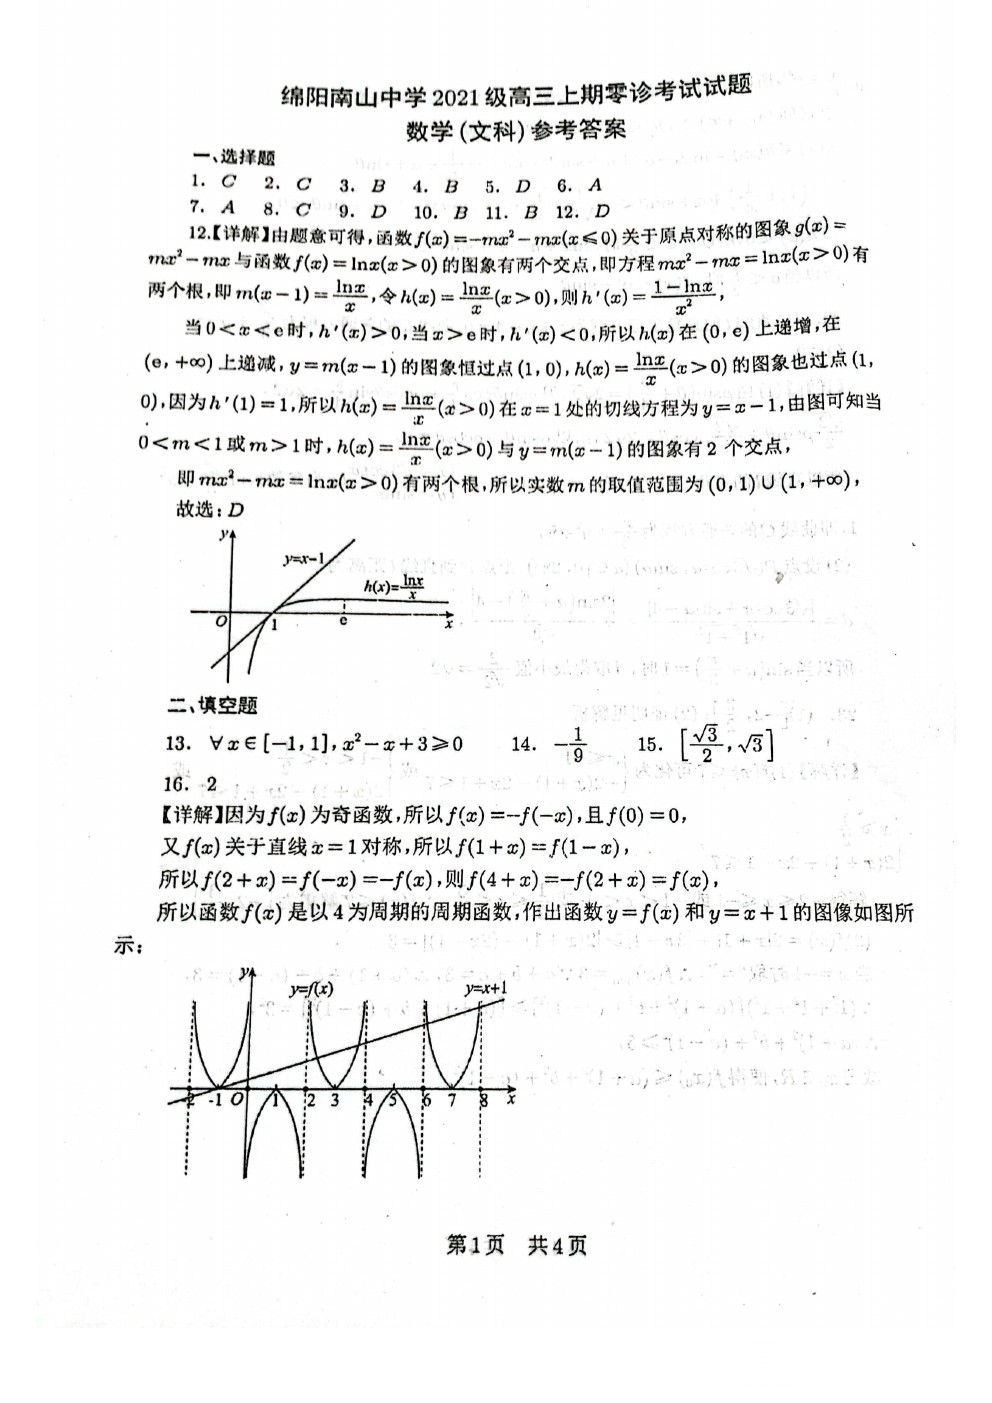 绵阳南山中学2021级高三上期零诊考试试题
数学(文科)参考答案
一、选择题
1. C 2. C 3. B 4. B 5. D 6. A
7. A 8. C 9. D 10. B 11. B 12. D
12.【详解】由题意可得,函数f(x)=-mx²-mx(x⩽0)关于原点对称的图象g(x)=
mx²-mx与函数f(x)=lnx(x>0)的图象有两个交点,即方程mx²-mx=lnx(x>0)有
两个根,即m(x-1)=lnx/x,令h(x)=lnx/x(x>0),则h′(x)=(1-lnx)/x²,
当0<x<e时,h′(x)>0,当x>e时,h′(x)<0,所以h(x)在(0,e)上递增,在
(e,+∞)上递减,y=m(x-1)的图象恒过点(1,0),h(x)=lnx/x(x>0)的图象也过点(1,
0),因为h′(1)=1,所以h(x)=lnx/x(x>0)在x=1处的切线方程为y=x-1,由图可知当
0<m<1或m>1时,h(x)=lnx/x(x>0)与y=m(x-1)的图象有2个交点,
即mx²-mx=lnx(x>0)有两个根,所以实数m的取值范围为(0,1)∪(1,+∞),
故选:D
y
y=x-1
h(x)=lnx/x
O 1 e x
二、填空题
13. ∀x∈[-1,1],x²-x+3⩾0 14. -1/9 15. [√3/2,√3]
16. 2
【详解】因为f(x)为奇函数,所以f(x)=-f(-x),且f(0)=0,
又f(x)关于直线x=1对称,所以f(1+x)=f(1-x),
所以f(2+x)=f(-x)=-f(x),则f(4+x)=-f(2+x)=f(x),
所以函数f(x)是以4为周期的周期函数,作出函数y=f(x)和y=x+1的图像如图所
示:
y
y=f(x) y=x+1
-2 -1 O 1 2 3 4 5 6 7 8 x
第1页 共4页